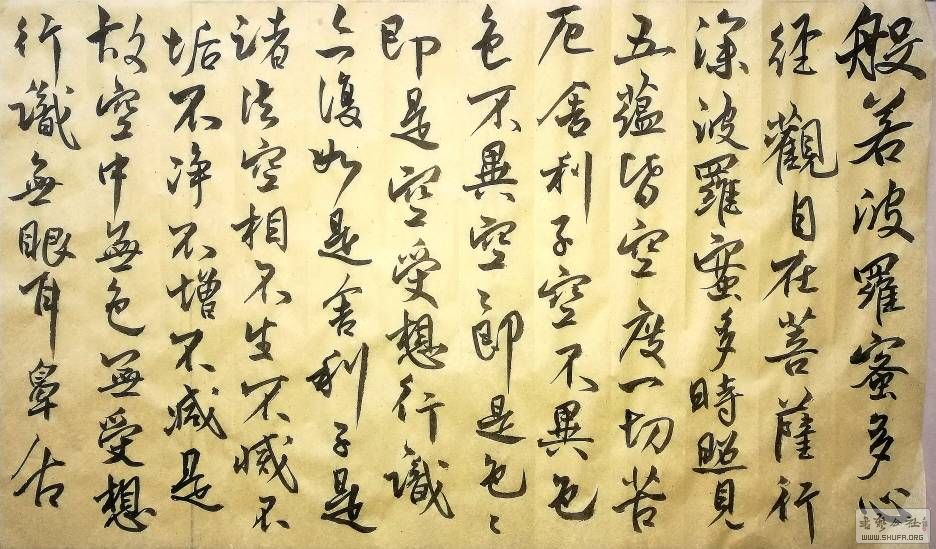 般若波羅蜜多心
經 觀自在菩薩行
深波羅蜜多時照見
五蘊皆空度一切苦
厄舍利子空不異色
色不異空〻即是色〻
即是空受想行識
亦復如是舍利子是
諸法空相不生不滅不
垢不净不增不减是
故空中無色無受想
行識無眼耳鼻舌
WWW.SHUFA.ORG